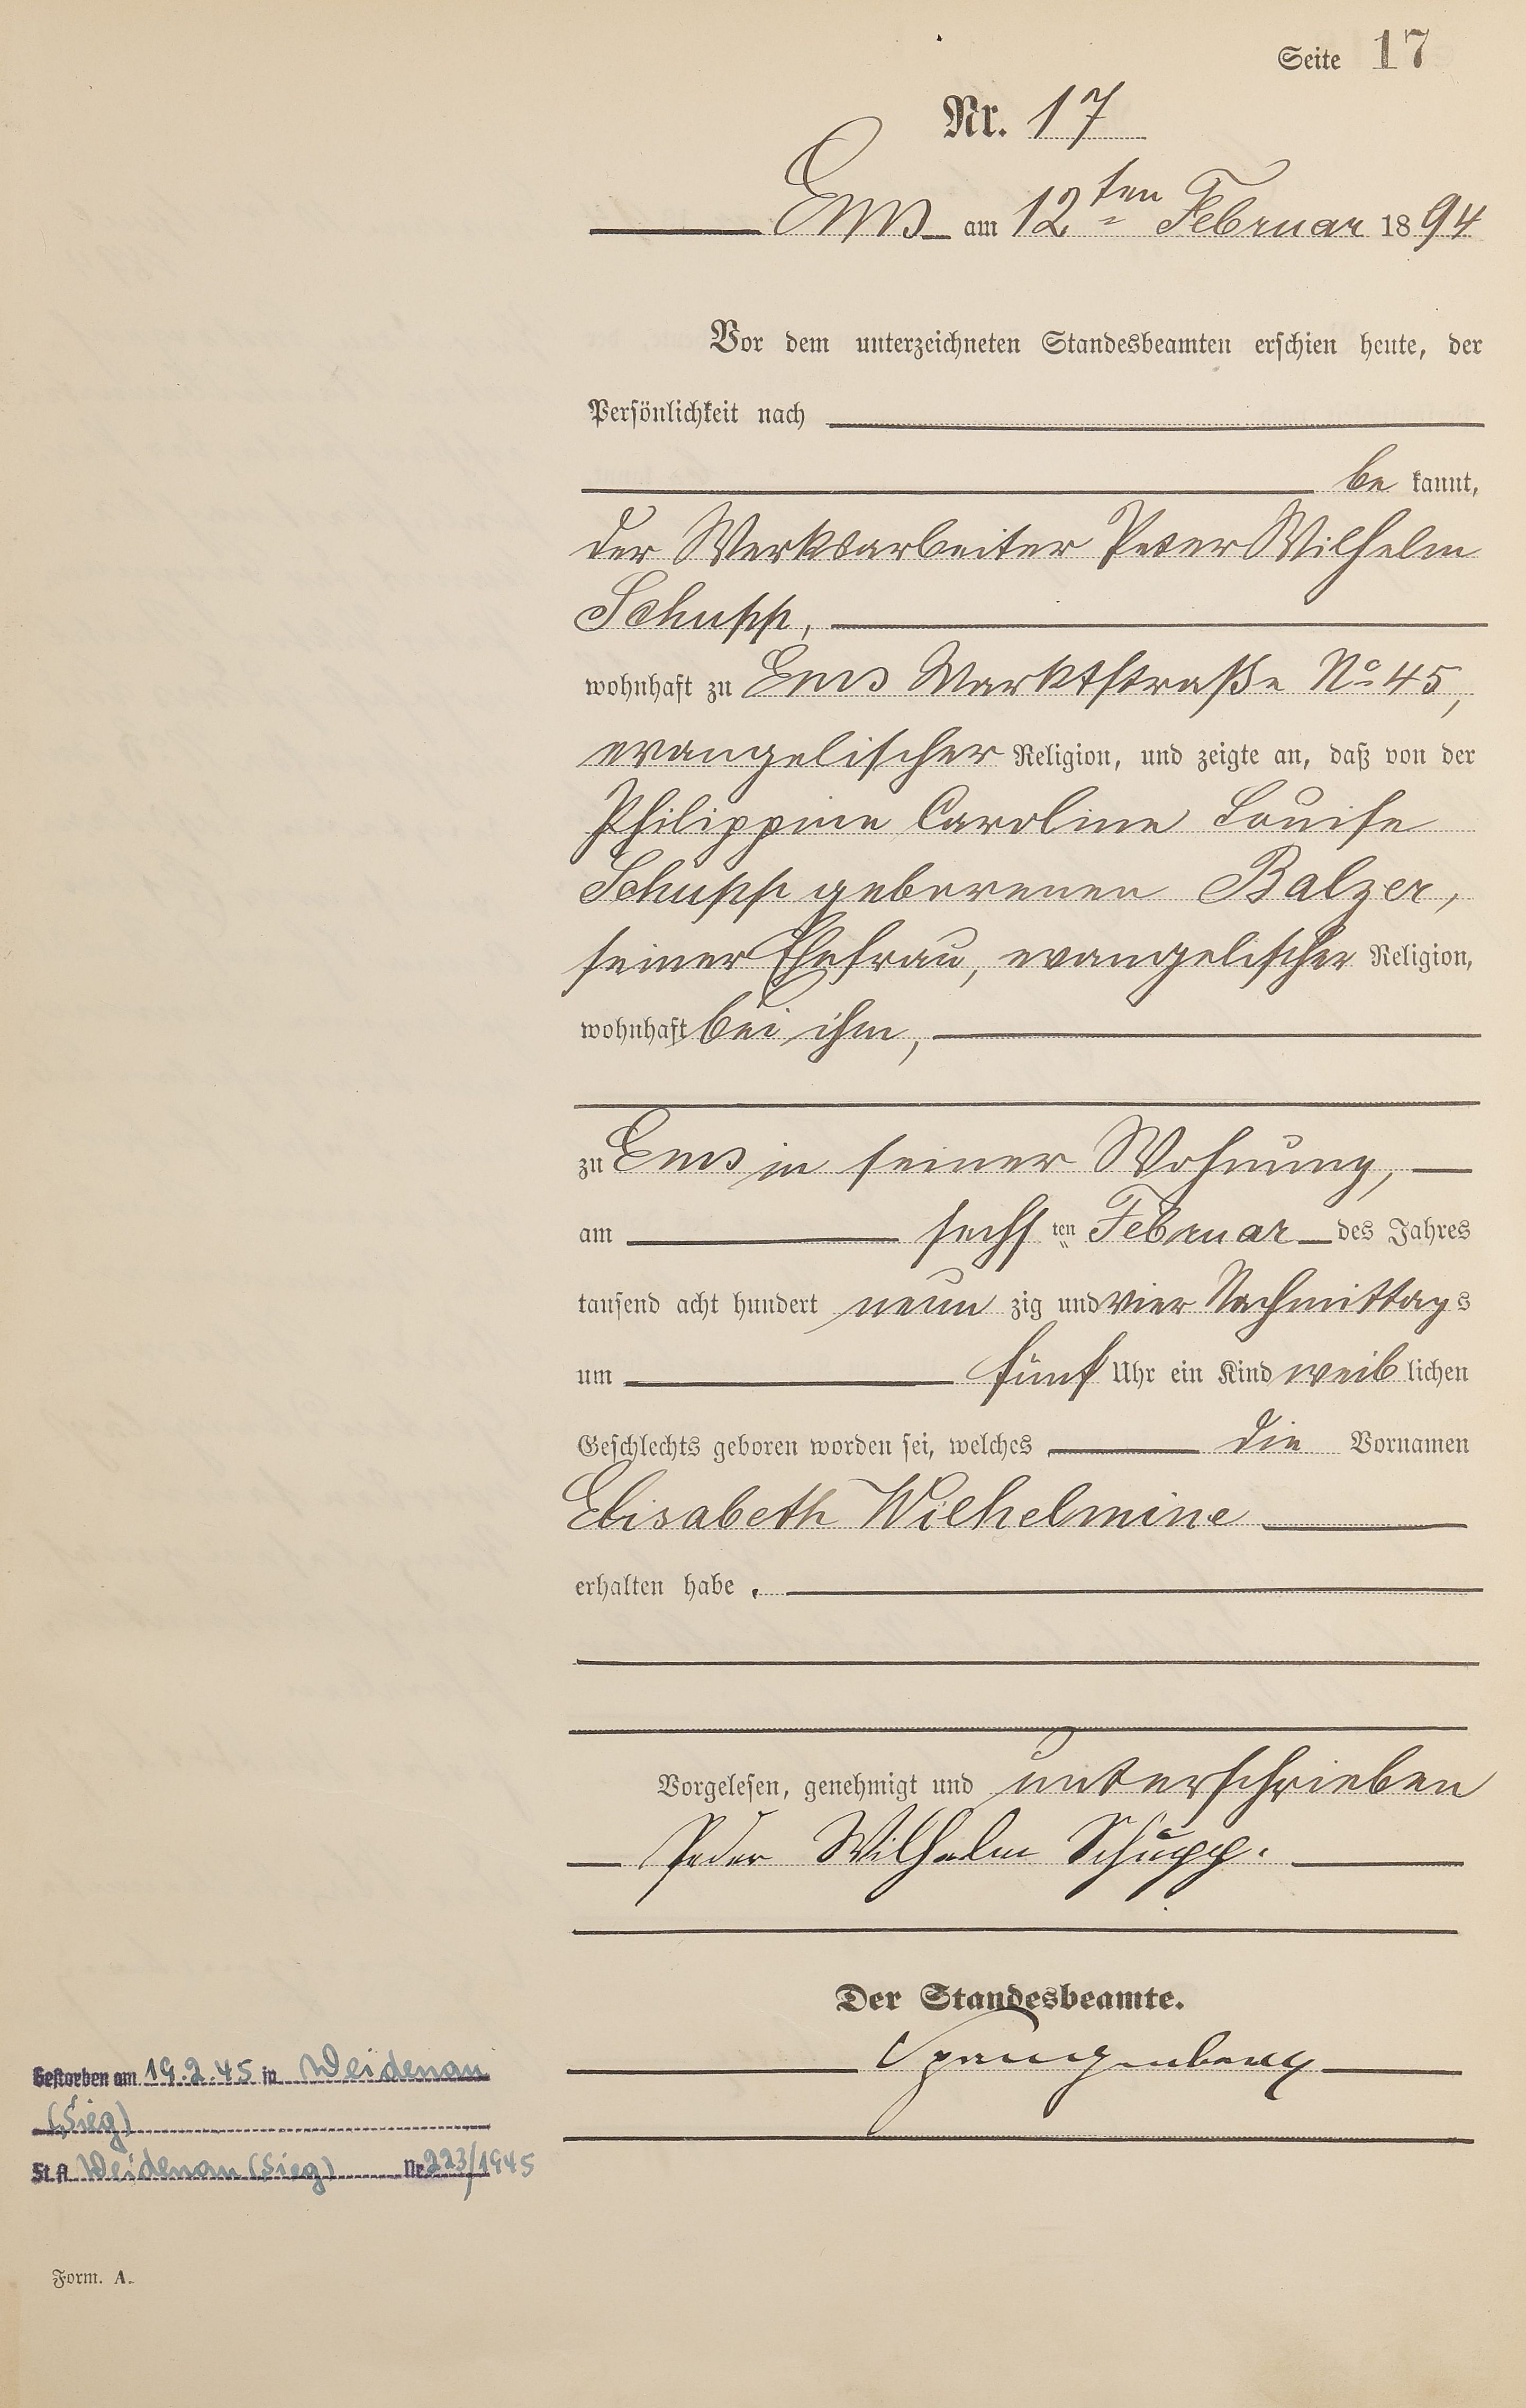 Seite 17
Nr. 17
Ems am 12ten Februar 1894
Vor dem unterzeichneten Standesbeamten erschien heute, der
Persönlichkeit nach
be kannt,
der Werksarbeiter Peter Wilhelm
Schupp,
wohnhaft zu Ems Marktstraße No 45,
evangelischer Religion, und zeigte an, daß von der
Philippine Caroline Louise
Schupp geborenen Balzer,
seiner Ehefrau, evangelischer Religion,
wohnhaft bei ihm,
zu Ems in seiner Wohnung,
am sechsten Februar des Jahres
tausend acht hundert neun zig und vier Nachmittags
um fünf Uhr ein Kind weib lichen
Geschlechts geboren worden sei, welches die Vornamen
Elisabeth Wilhelmine
erhalten habe.
Vorgelesen, genehmigt und unterschrieben
Peter Wilhelm Schupp.
Der Standesbeamte.
Spangenberg
Gestorben am 19.2.45 in Weidenau
(Sieg)
St.A. Weidenau (Sieg) Nr. 223/1945
Form. A.